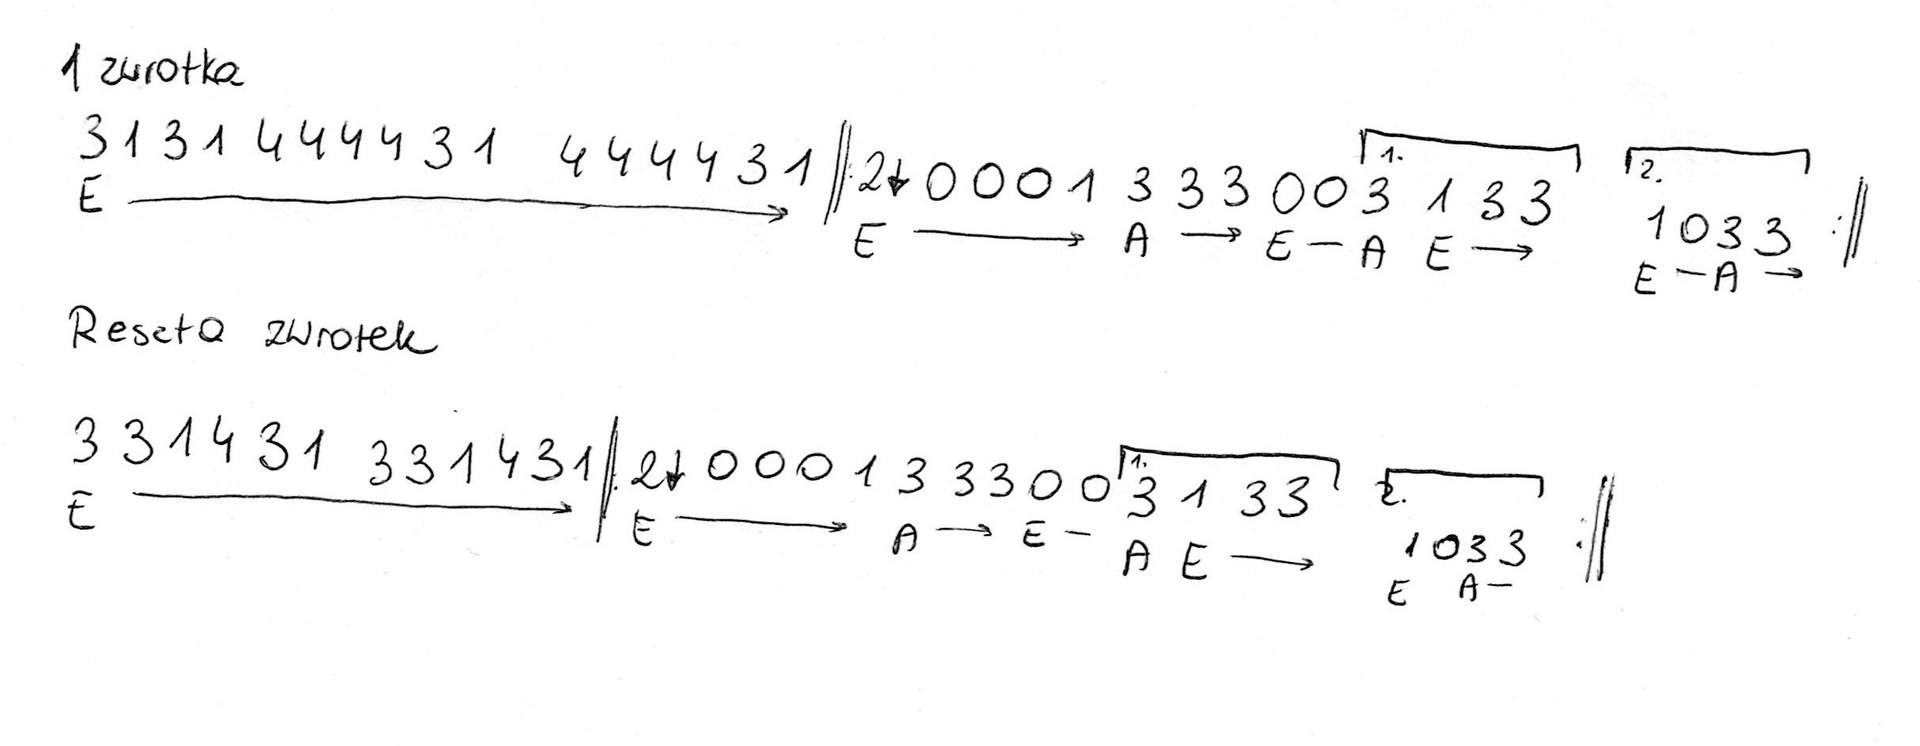 1 zwrotka
3 1 3 1 4 4 4 4 3 1 4 4 4 4 3 1 ||: 2↓ 0 0 0 1 3 3 3 0 0 3 1 3 3 1 0 3 3 :||
1. 2.
E → E → A → E — A E → E — A →
Reszta zwrotek
3 3 1 4 3 1 3 3 1 4 3 1 ||: 2↓ 0 0 0 1 3 3 3 0 0 3 1 3 3 1 0 3 3 :||
1. 2.
E → E → A → E — A E → E A —